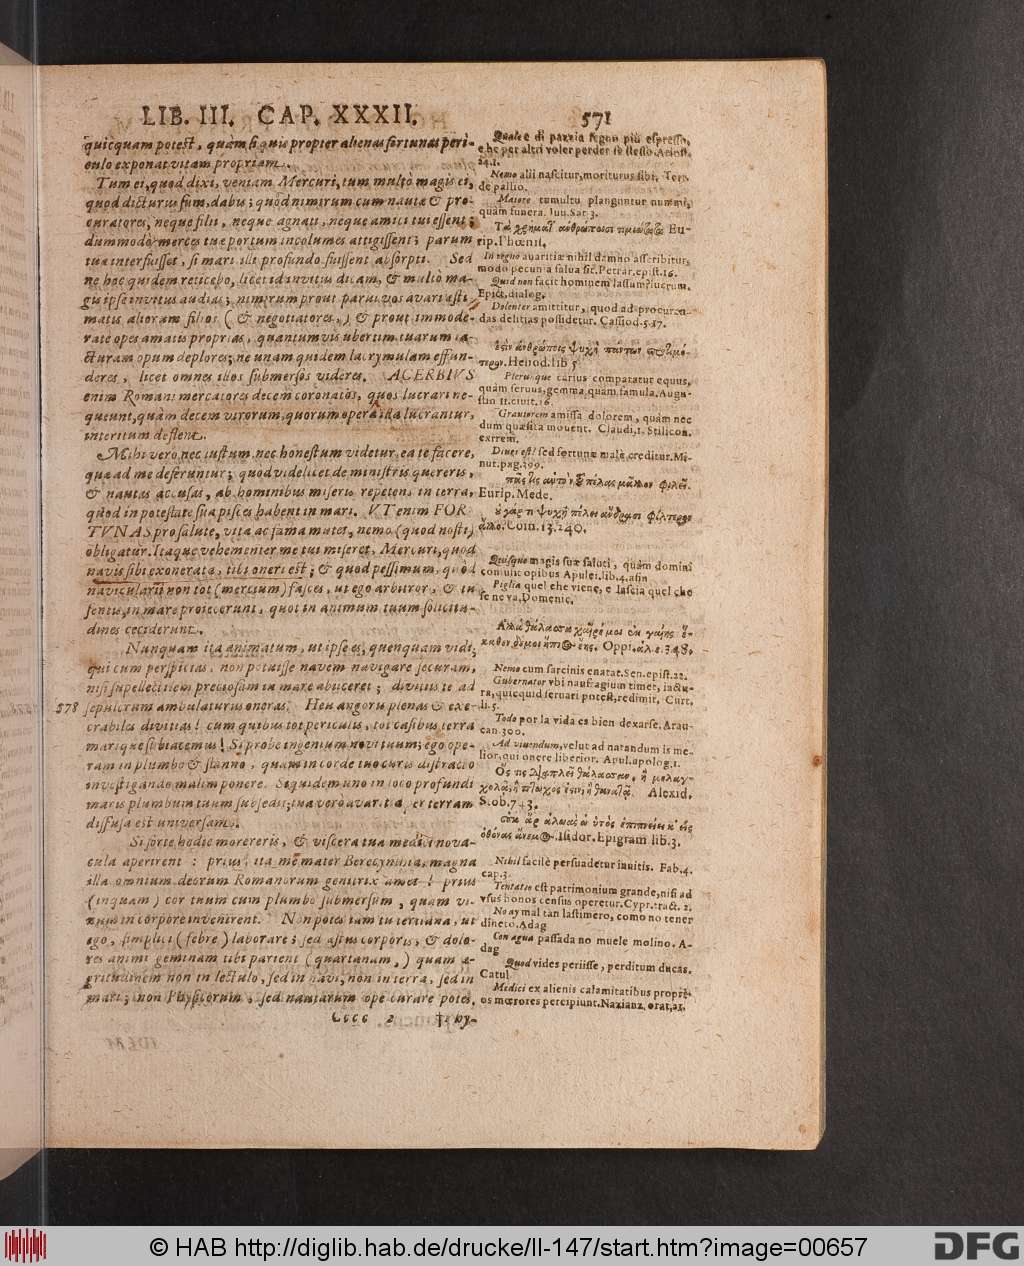 LIB. III. CAP. XXXII. 571
quicquam potest, quàm si quis propter alienas fortunas peri-
culo exponat vitam propriam.
Tum ei, quod dixi, veniam Mercuri, tum multò magis ei,
quod dicturus sum, dabis; quòd nimirum cum nautæ & pro-
curatores, neque filii, neque agnati, neque amici tui essent;
dummodo merces tuæ portum incolumes attigissent; parum
tua interfuisset, si maris illi profundo fuissent absorpti. Sed
ne hoc quidem reticebo, licet id invitus dicam, & multò ma-
gis ipse invitus audias; nimirum prout parui vos avari æsti-
matis aliorum filios (& negotiatores,) & prout immode-
rate opes amatis proprias, quantumvis ubertim tuarum ia-
cturam opum deplores; ne unam quidem lacrymulam effun-
deres, licet omnes illos submersos videres. ACERBIVS
enim Romani mercatores decem coronatos, quos lucrari ne-
queunt, quàm decem virorum, quorum opera illa lucrantur,
interitum deflent.
Mihi verò nec iustum, nec honestum videtur, ea te facere,
quæ ad me deferuntur; quod videlicet de ministris quereris,
& nautas accusas, ab hominibus miseris repetens in terra,
quòd in potestate sua pisces habent in mari. VT enim FOR-
TVNAS pro salute, vita ac fama mutet, nemo (quod nosti)
obligatur. Itaque vehementer me tui miseret, Mercuri, quod
navis sibi exonerata, tibi oneri est; & quod pessimum, quòd
navicularii non tot (mercium) fasces, ut ego arbitror, & tu
sentis, in mare proiecerunt, quot in animum tuum solicitu-
dines ceciderunt.
Nunquam ita animatum, ut ipse es, quenquam vidi,
qui cum perspicias, non potuisse navem navigare securam,
nisi supellectilem preciosam in mare abiiceret; divitiis te ad
578
sepulcrum ambulaturus oneras. Heu angoris plenas & exe-
crabiles divitias! cum quibus tot periculis, tot casibus terra
mari que subiacemus! Si probe ingenium novi tuum; ego ope-
ram in plumbo & stanno, quam in corde tuo curis distracto
investigando malim ponere. Siquidem uno in loco profundi
maris plumbum tuum subsedit; tua verò avaritia per terram
diffusa est universam.
Si forte hodie morereris, & viscera tua medici nova-
cula aperirent: prius, ita me mater Berecynthia, magna
illa omnium deorum Romanorum genitrix amet! prius
(inquam) cor tuum cum plumbo submersum, quam vi-
num in corpore invenirent. Non potes iam tu tertiana, ut
ego, simplici (febre) laborare; sed æstus corporis, & dolo-
res animi geminam tibi parient (quartanam,) quam æ-
gritudinem non in lectulo, sed in navi, non in terra, sed in
mari; non Physicorum, sed nautarum ope curare potes.
Cccc 2 T. hy-
Quale è di pazzia segno più espresso,
che per altri voler perder sè stesso. Ariost.
24.1.
Nemo alii nascitur, moriturus sibi. Ters.
de pallio.
Maiore tumultu planguntur nummi,
quàm funera. Juu. Sat. 3.
Eu-
rip. Phœniss.
In regno avaritiæ nihil damno asscribitur,
modo pecunia salua sit. Petrar. epist. 16.
Quid non facit hominem lassum? lucrum.
Epict. dialog.
Dolenter amittitur, quod ad procuran-
das delitias possidetur. Cassiod. 5.37.
Hesiod. lib. 5
Plerumque carius comparatur equus,
quàm seruus, gemma, quàm famula. Augu-
stin 11. ciuit. 16.
Grauiorem amissa dolorem, quàm nec
dum quæsita mouent. Claudi. 1. Stilicon.
extrem.
Diues est! sed fortunæ malè creditur. Mi-
nut. pag. 109.
Eurip. Mede.
Coin. 13.240.
Quisque magis suæ saluti, quàm domini
consulit opibus Apulei. lib. 4. asin
Piglia quel che viene, e lascia quel che
se ne va. Domenic.
Oppi. αλ. 2. 348.
Nemo cum sarcinis enatat. Sen. epist. 22.
Gubernator vbi naufragium timet, iactu-
ra, quicquid seruari potest, redimit. Curt.
li. 5.
Todo por la vida es bien dexarse. Arau-
can. 300.
Ad viuendum, velut ad natandum is me-
lior, qui onere liberior. Apul. apolog. 1.
Alexid.
Stob. 743.
Isidor. Epigram lib. 3.
Nihil facilè persuadetur inuitis. Fab. 4.
cap. 3.
Tentatio est patrimonium grande, nisi ad
vsus bonos census operetur. Cypr. tract. 2.
No ay mal tan lastimero, como no tener
dineto. Adag
Con agua passada no muele molino. A-
dag
Quod vides periisse, perditum ducas.
Catul
Medici ex alienis calamitatibus propri-
os mœrores percipiunt. Nazianz. orat. 21.
© HAB http://diglib.hab.de/drucke/II-147/start.htm?image=00657
DFG